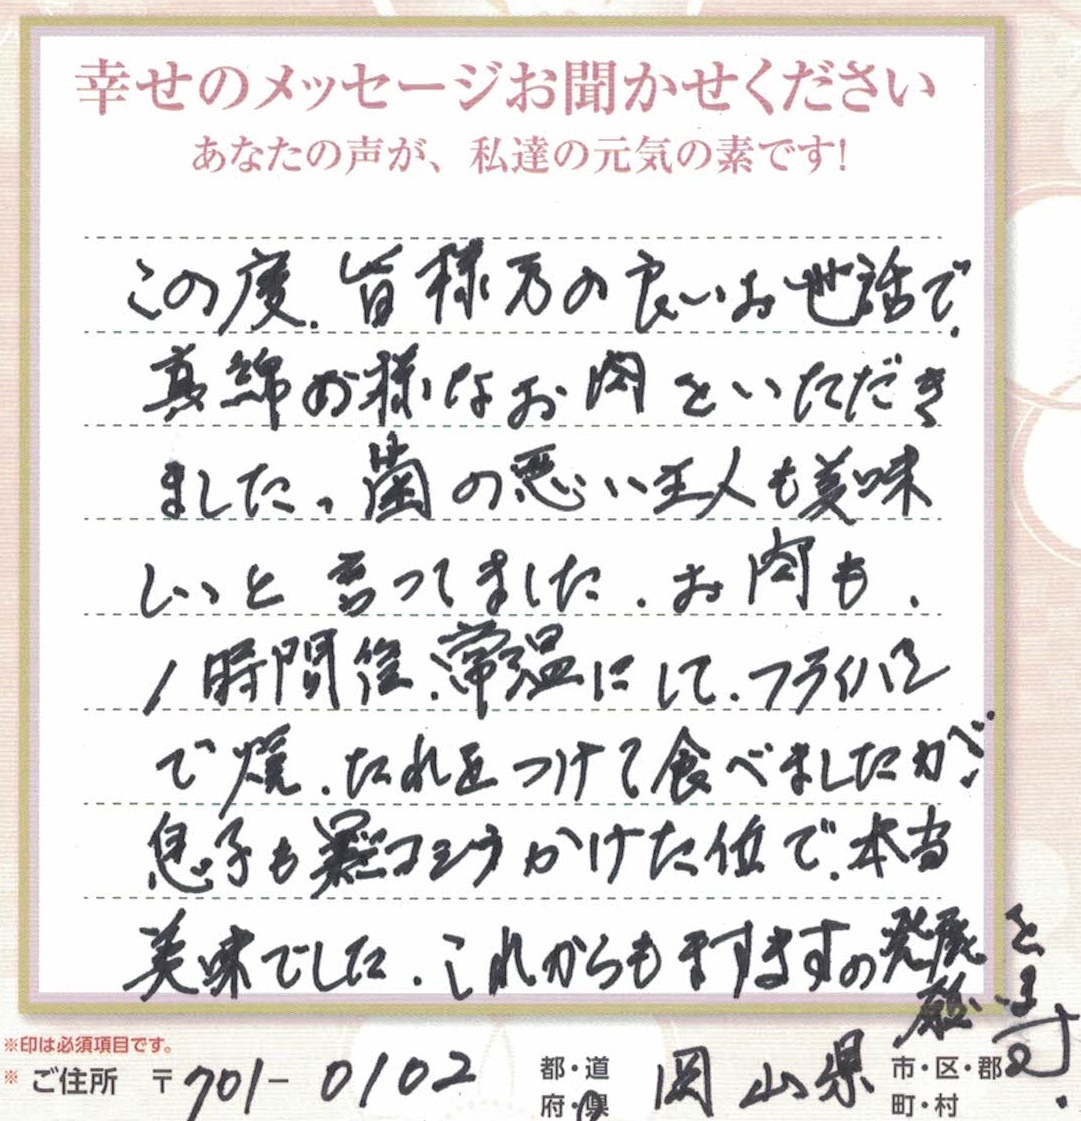 幸せのメッセージお聞かせください
あなたの声が、私達の元気の素です!
この度、皆様方の良いお世話で、
真綿の様なお肉をいただき
ました。歯の悪い主人も美味
しいと言ってました。お肉も、
1時間位、常温にして、フライパン
で焼、たれをつけて食べましたが、
息子も黒コショウかけた位で、本当
美味でした。これからもますますの発展を
願います。
※印は必須項目です。
※ ご住所 〒701-0102 都・道 府・県 岡山県 市・区・郡 町・村